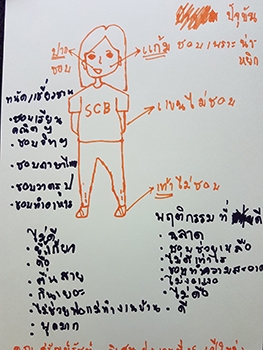 ปัจจุบัน
ปาก
ชอบ
แก้ม ชอบเพราะน่า
หยิก
ถนัด/เชี่ยวชาญ
SCB
แขนไม่ชอบ
- ชอบเรียน
คณิตฯ
- ชอบภาษาไทย
- ชอบวาดรูป
- ชอบทำอาหาร
เท้าไม่ชอบ
พฤติกรรมที่
ไม่ดี
ขี้เกียจ
ดื้อ
ตื่นสาย
กินเยอะ
ไม่ช่วยพ่อแม่ทำงานบ้าน
พูดมาก
ฉลาด
ชอบช่วยเหลือ
ชอบทำความสะอาด
ไม่ดื้อ
ดี